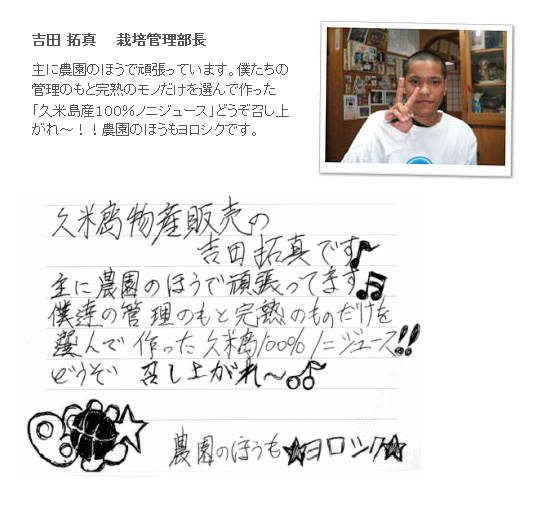 吉田 拓真　栽培管理部長
主に農園のほうで頑張っています。僕たちの
管理のもと完熟のモノだけを選んで作った
「久米島産100%ノニジュース」どうぞ召し上
がれ～！！農園のほうもヨロシクです。
久米島物産販売の
吉田拓真です♪
主に農園のほうで頑張ってます♫
僕達の管理のもと完熟のものだけを
選んで作った久米島100%ノニジュース!!
どうぞ 召し上がれ～
農園のほうも★ヨロシク★